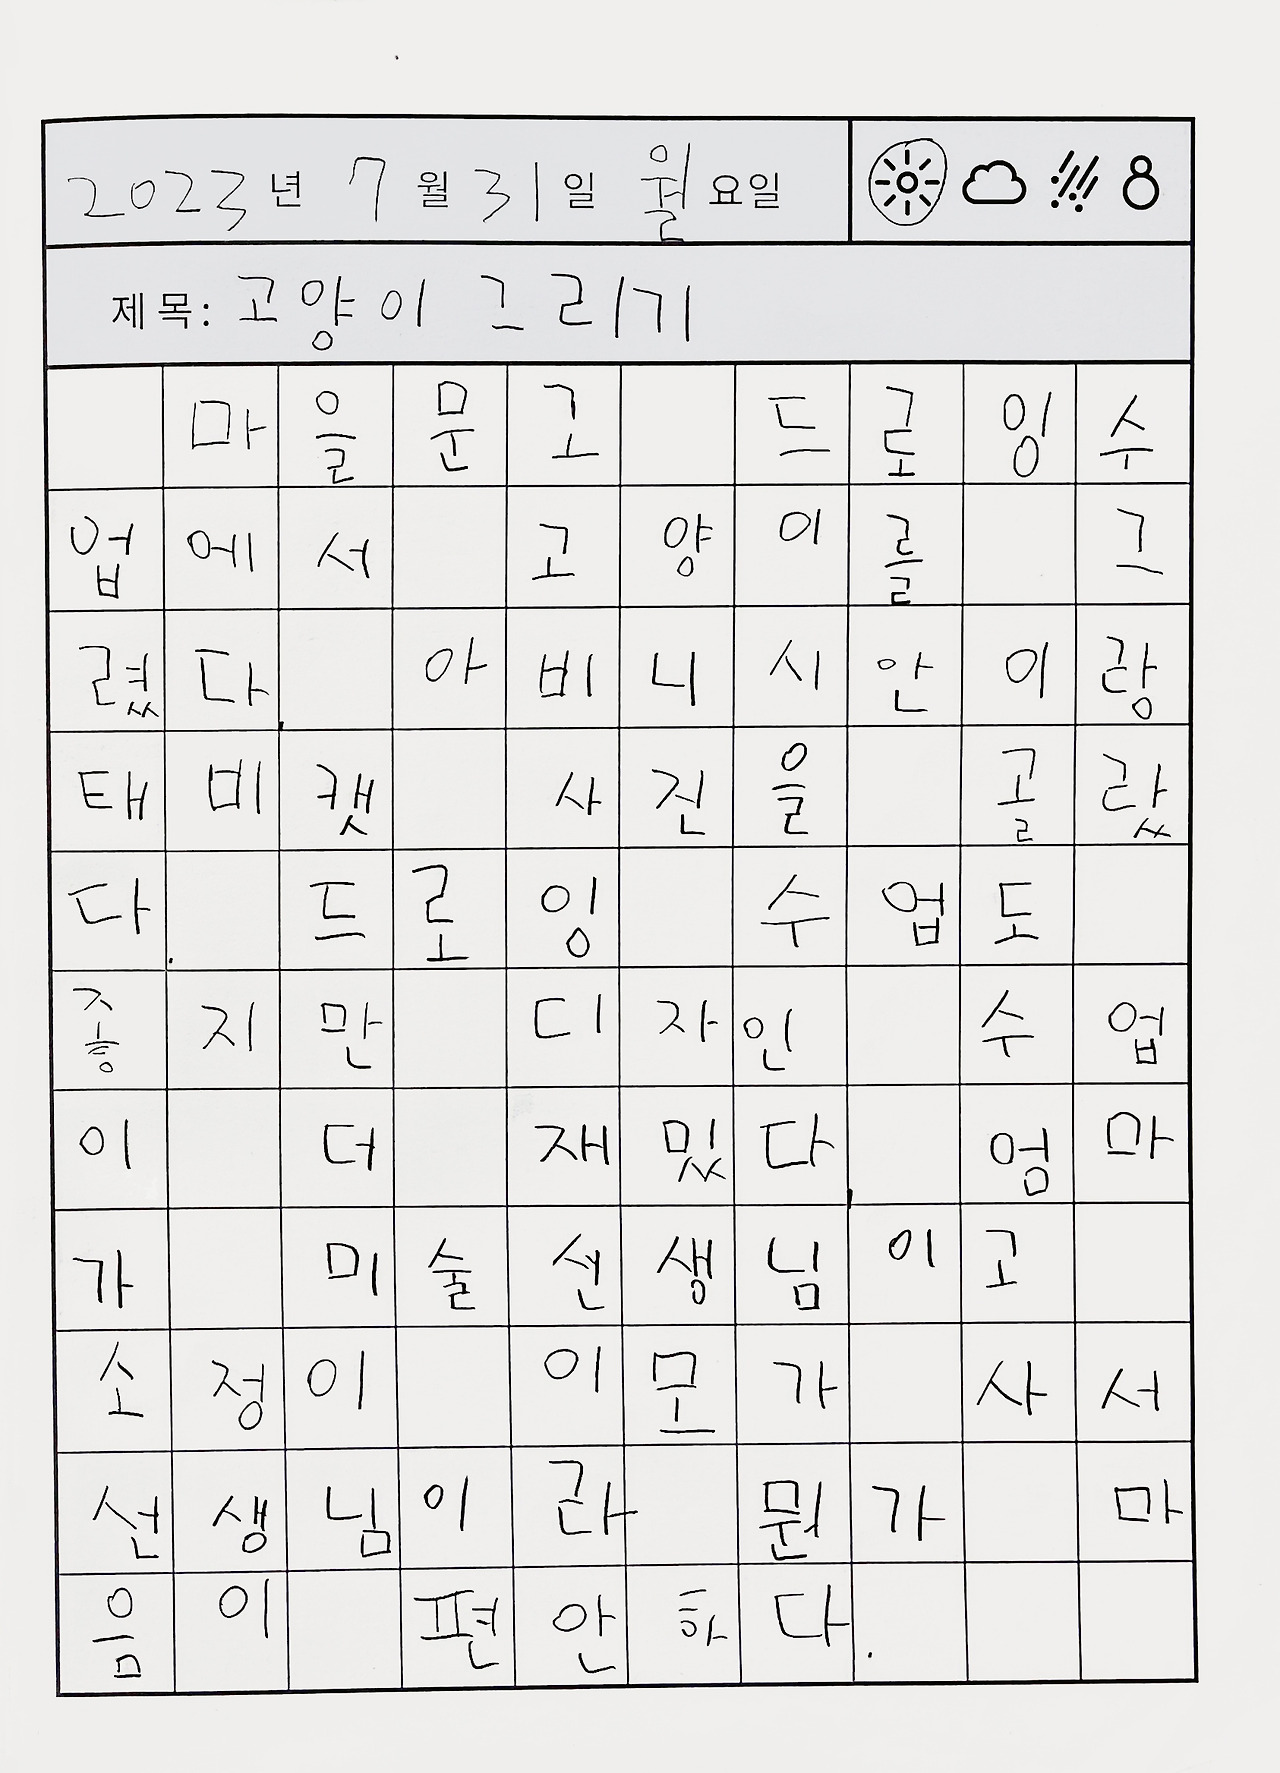 2023년 7월 31일 월요일
제목: 고양이 그리기
마을문고 드로잉수
업에서 고양이를 그
렸다. 아비니시안이랑
태비캣 사진을 골랐
다. 드로잉 수업도
좋지만 디자인 수업
이 더 재밌다. 엄마
가 미술선생님이고
소정이 이모가 사서
선생님이라 뭔가 마
음이 편안하다.